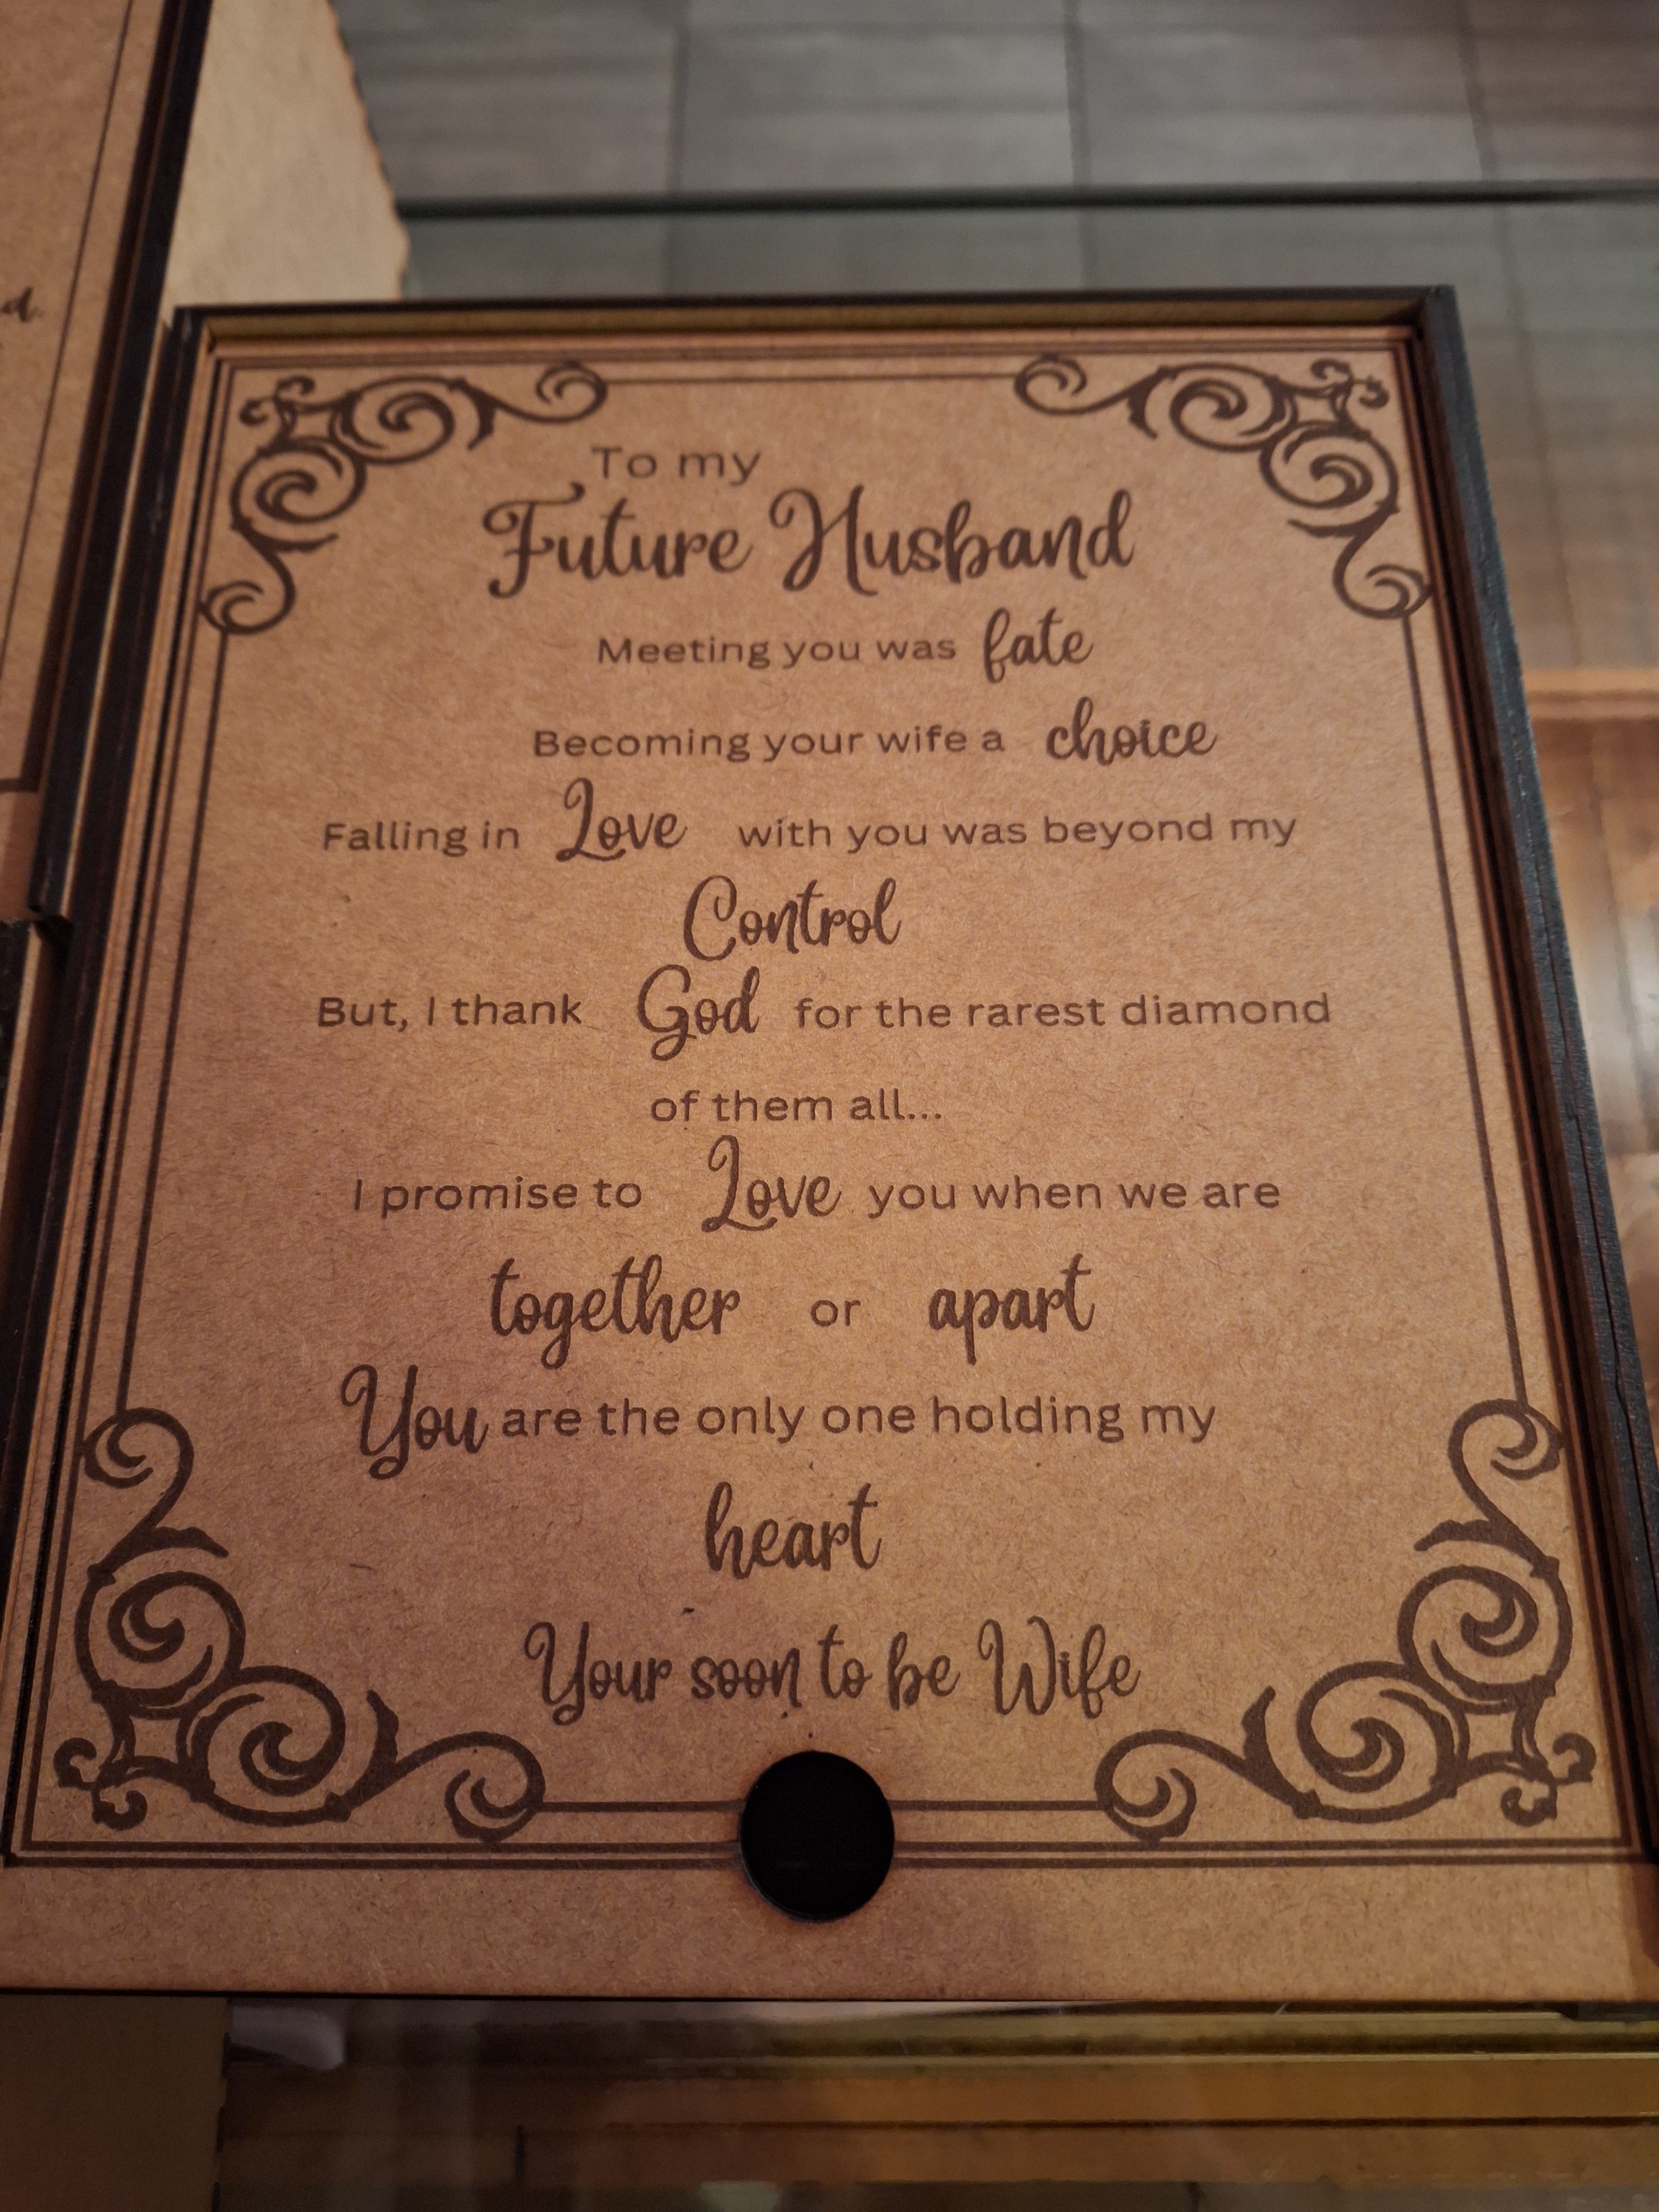 To my
Future Husband
Meeting you was fate
Becoming your wife a choice
Falling in Love with you was beyond my
Control
But, I thank God for the rarest diamond
of them all...
I promise to Love you when we are
together or apart
You are the only one holding my
heart
Your soon to be Wife